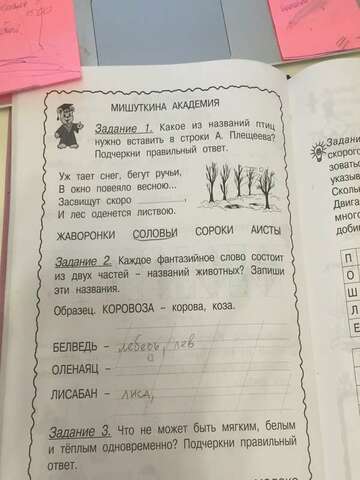 МИШУТКИНА АКАДЕМИЯ
Задание 1. Какое из названий птиц
нужно вставить в строки А. Плещеева?
Подчеркни правильный ответ.
Уж тает снег, бегут ручьи,
В окно повеяло весною...
Засвищут скоро ________,
И лес оденется листвою.
ЖАВОРОНКИ СОЛОВЬИ СОРОКИ АИСТЫ
Задание 2. Каждое фантазийное слово состоит
из двух частей – названий животных? Запиши
эти названия.
Образец. КОРОВОЗА – корова, коза.
БЕЛВЕДЬ – лебедь, лев
ОЛЕНАЯЦ –
ЛИСАБАН – лиса,
Задание 3. Что не может быть мягким, белым
и тёплым одновременно? Подчеркни правильный
ответ.
Задани
скорого
зовать
указыв
Сколь
Двига
добы
П
О
Ш
Л
Е